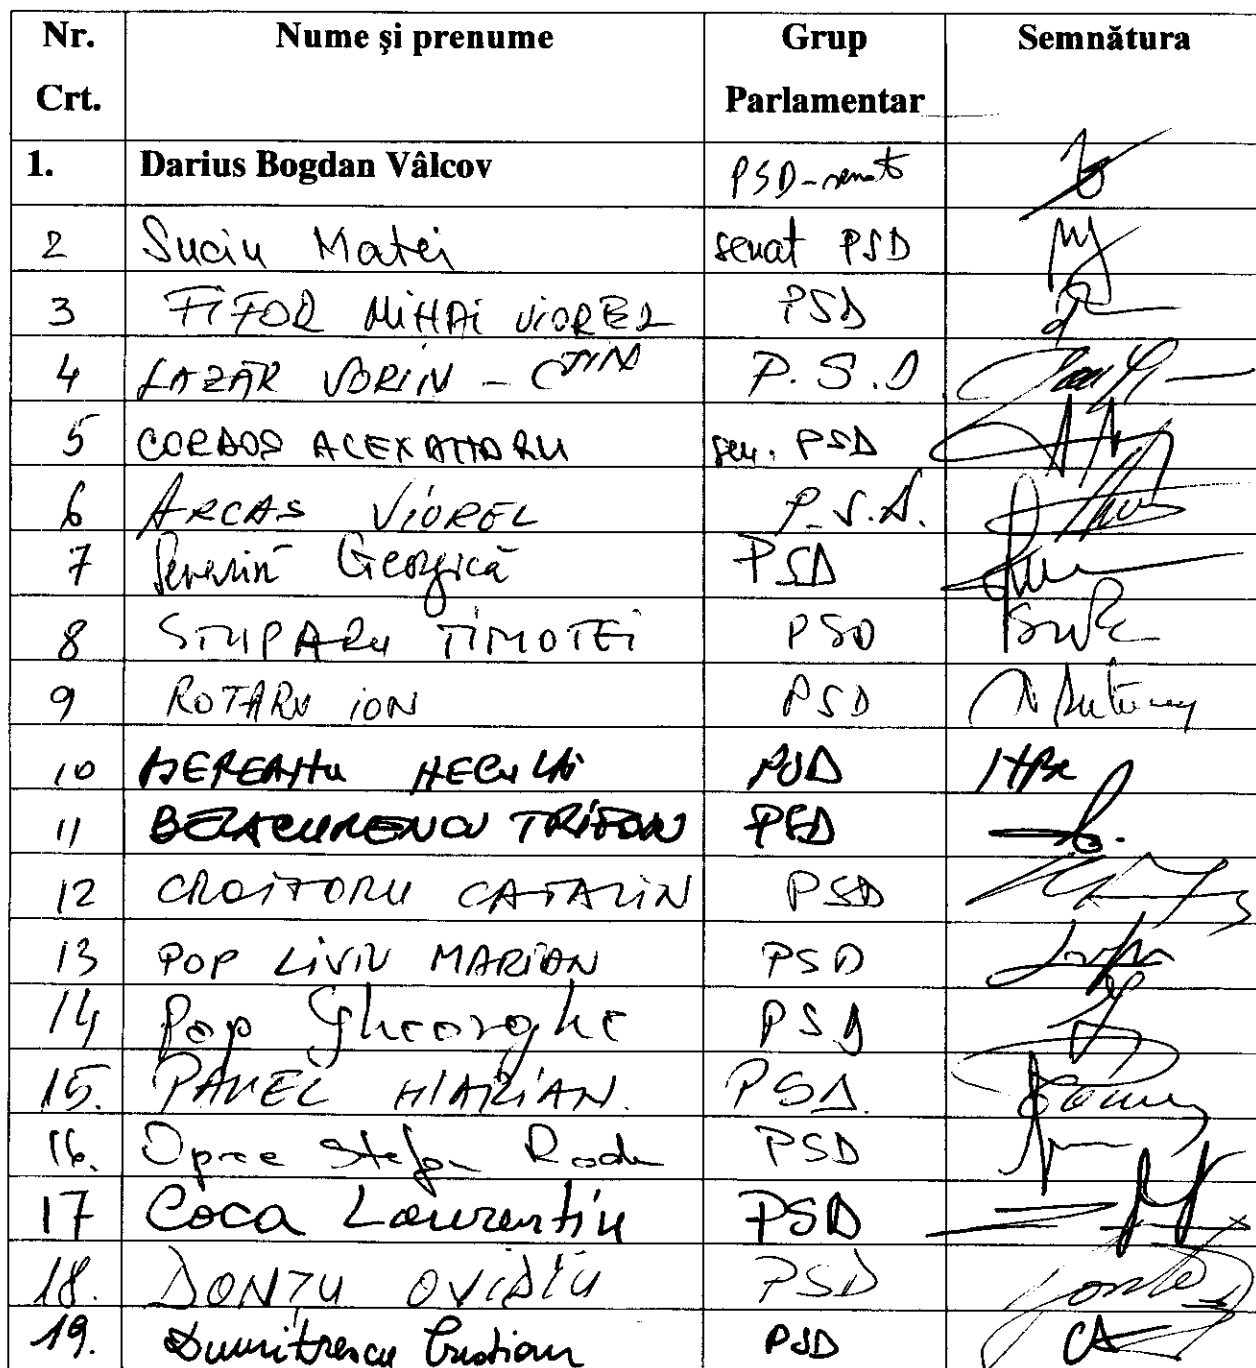 Nr. Crt. Nume şi prenume Grup Parlamentar Semnătura
1. Darius Bogdan Vâlcov PSD-senat
2 Suciu Matei senat PSD
3 FIFOR MIHAI VIOREL PSD
4 LAZĂR SORIN - CTIN P.S.D
5 CORDOȘ ALEXANDRU sen. PSD
6 ARCAȘ VIOREL P.S.D.
7 Severin Georgică PSD
8 STUPARU TIMOTEI PSD
9 ROTARU ION PSD
10 PSD
11 BELACURENCU TRIFON PSD
12 CROITORU CATALIN PSD
13 POP LIVIU MARIAN PSD
14 Pop Gheorghe PSD
15. PAVEL MARIAN. PSD.
16. Oprea Stefan Radu PSD
17 Coca Laurentiu PSD
18. DONȚU OVIDIU PSD
19. Dumitrescu Cristian PSD